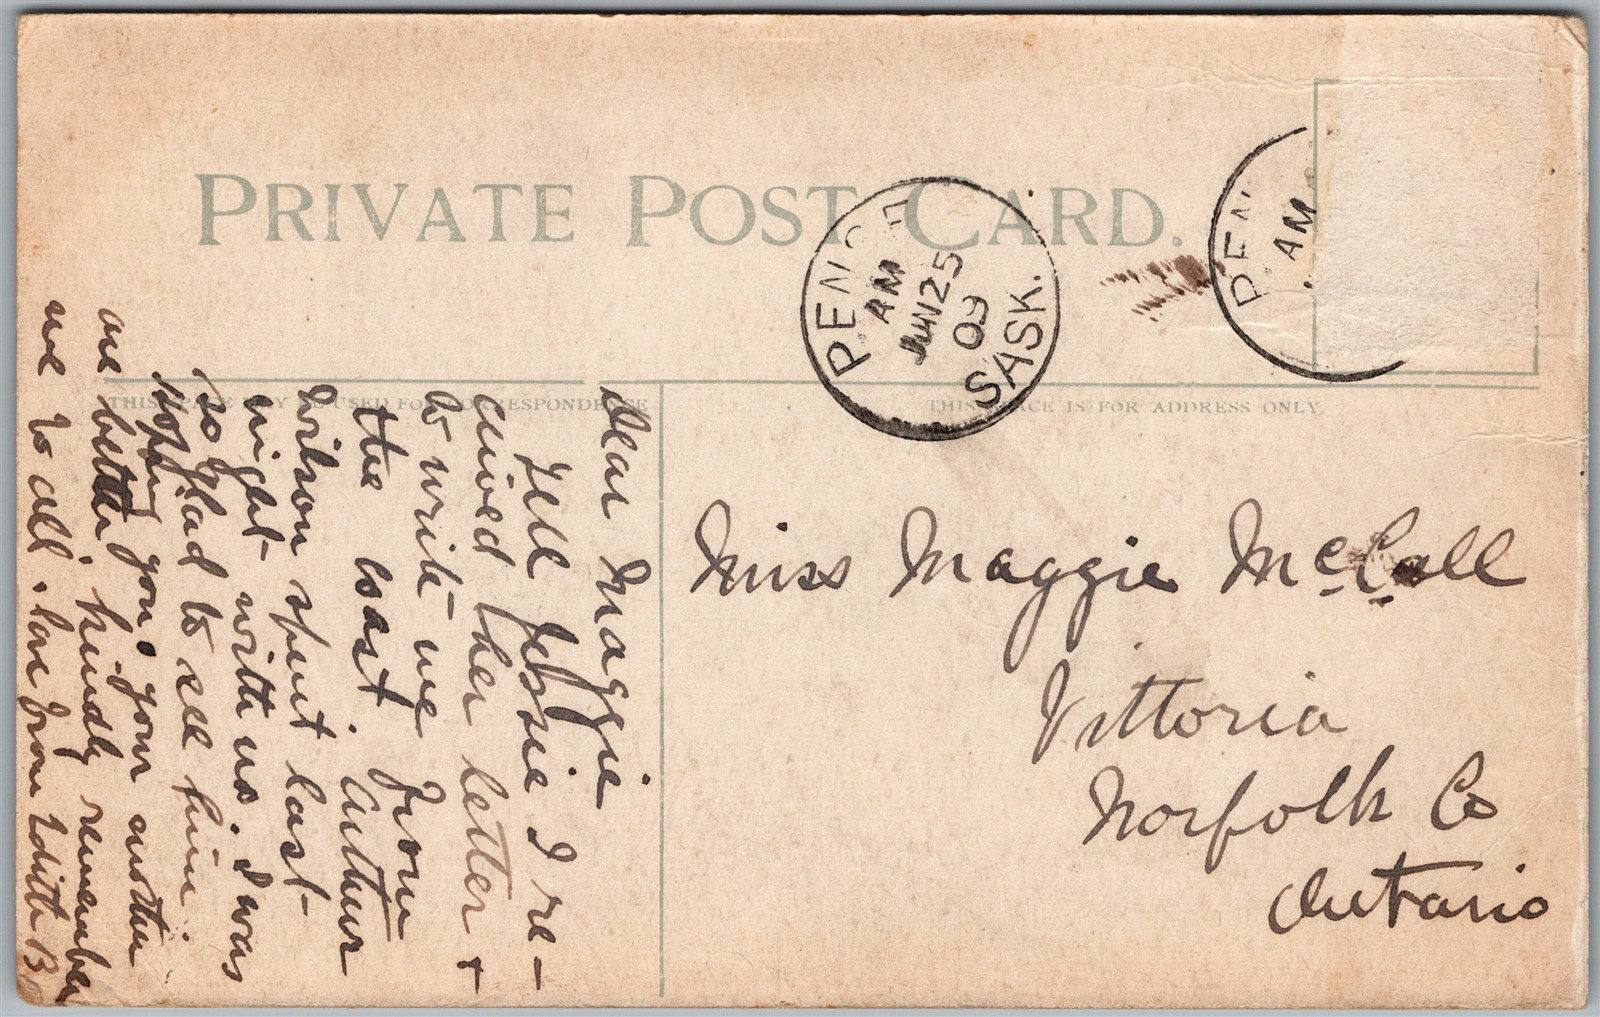 PRIVATE POST CARD.
PEN
AM
JUN 25
09
SASK.
PEN
AM
THIS SPACE MAY BE USED FOR CORRESPONDENCE
THIS SPACE IS FOR ADDRESS ONLY
Dear Maggie
Tell Jessie I re-
ceived her letter +
to write me from
the coast. Arthur
Wilson spent last
night with us. I was
so glad to see him.
Hoping you, your mother
are better, kindly remember
me to all. love from Edith B
Miss Maggie McCall
Vittoria
Norfolk Co
Ontario